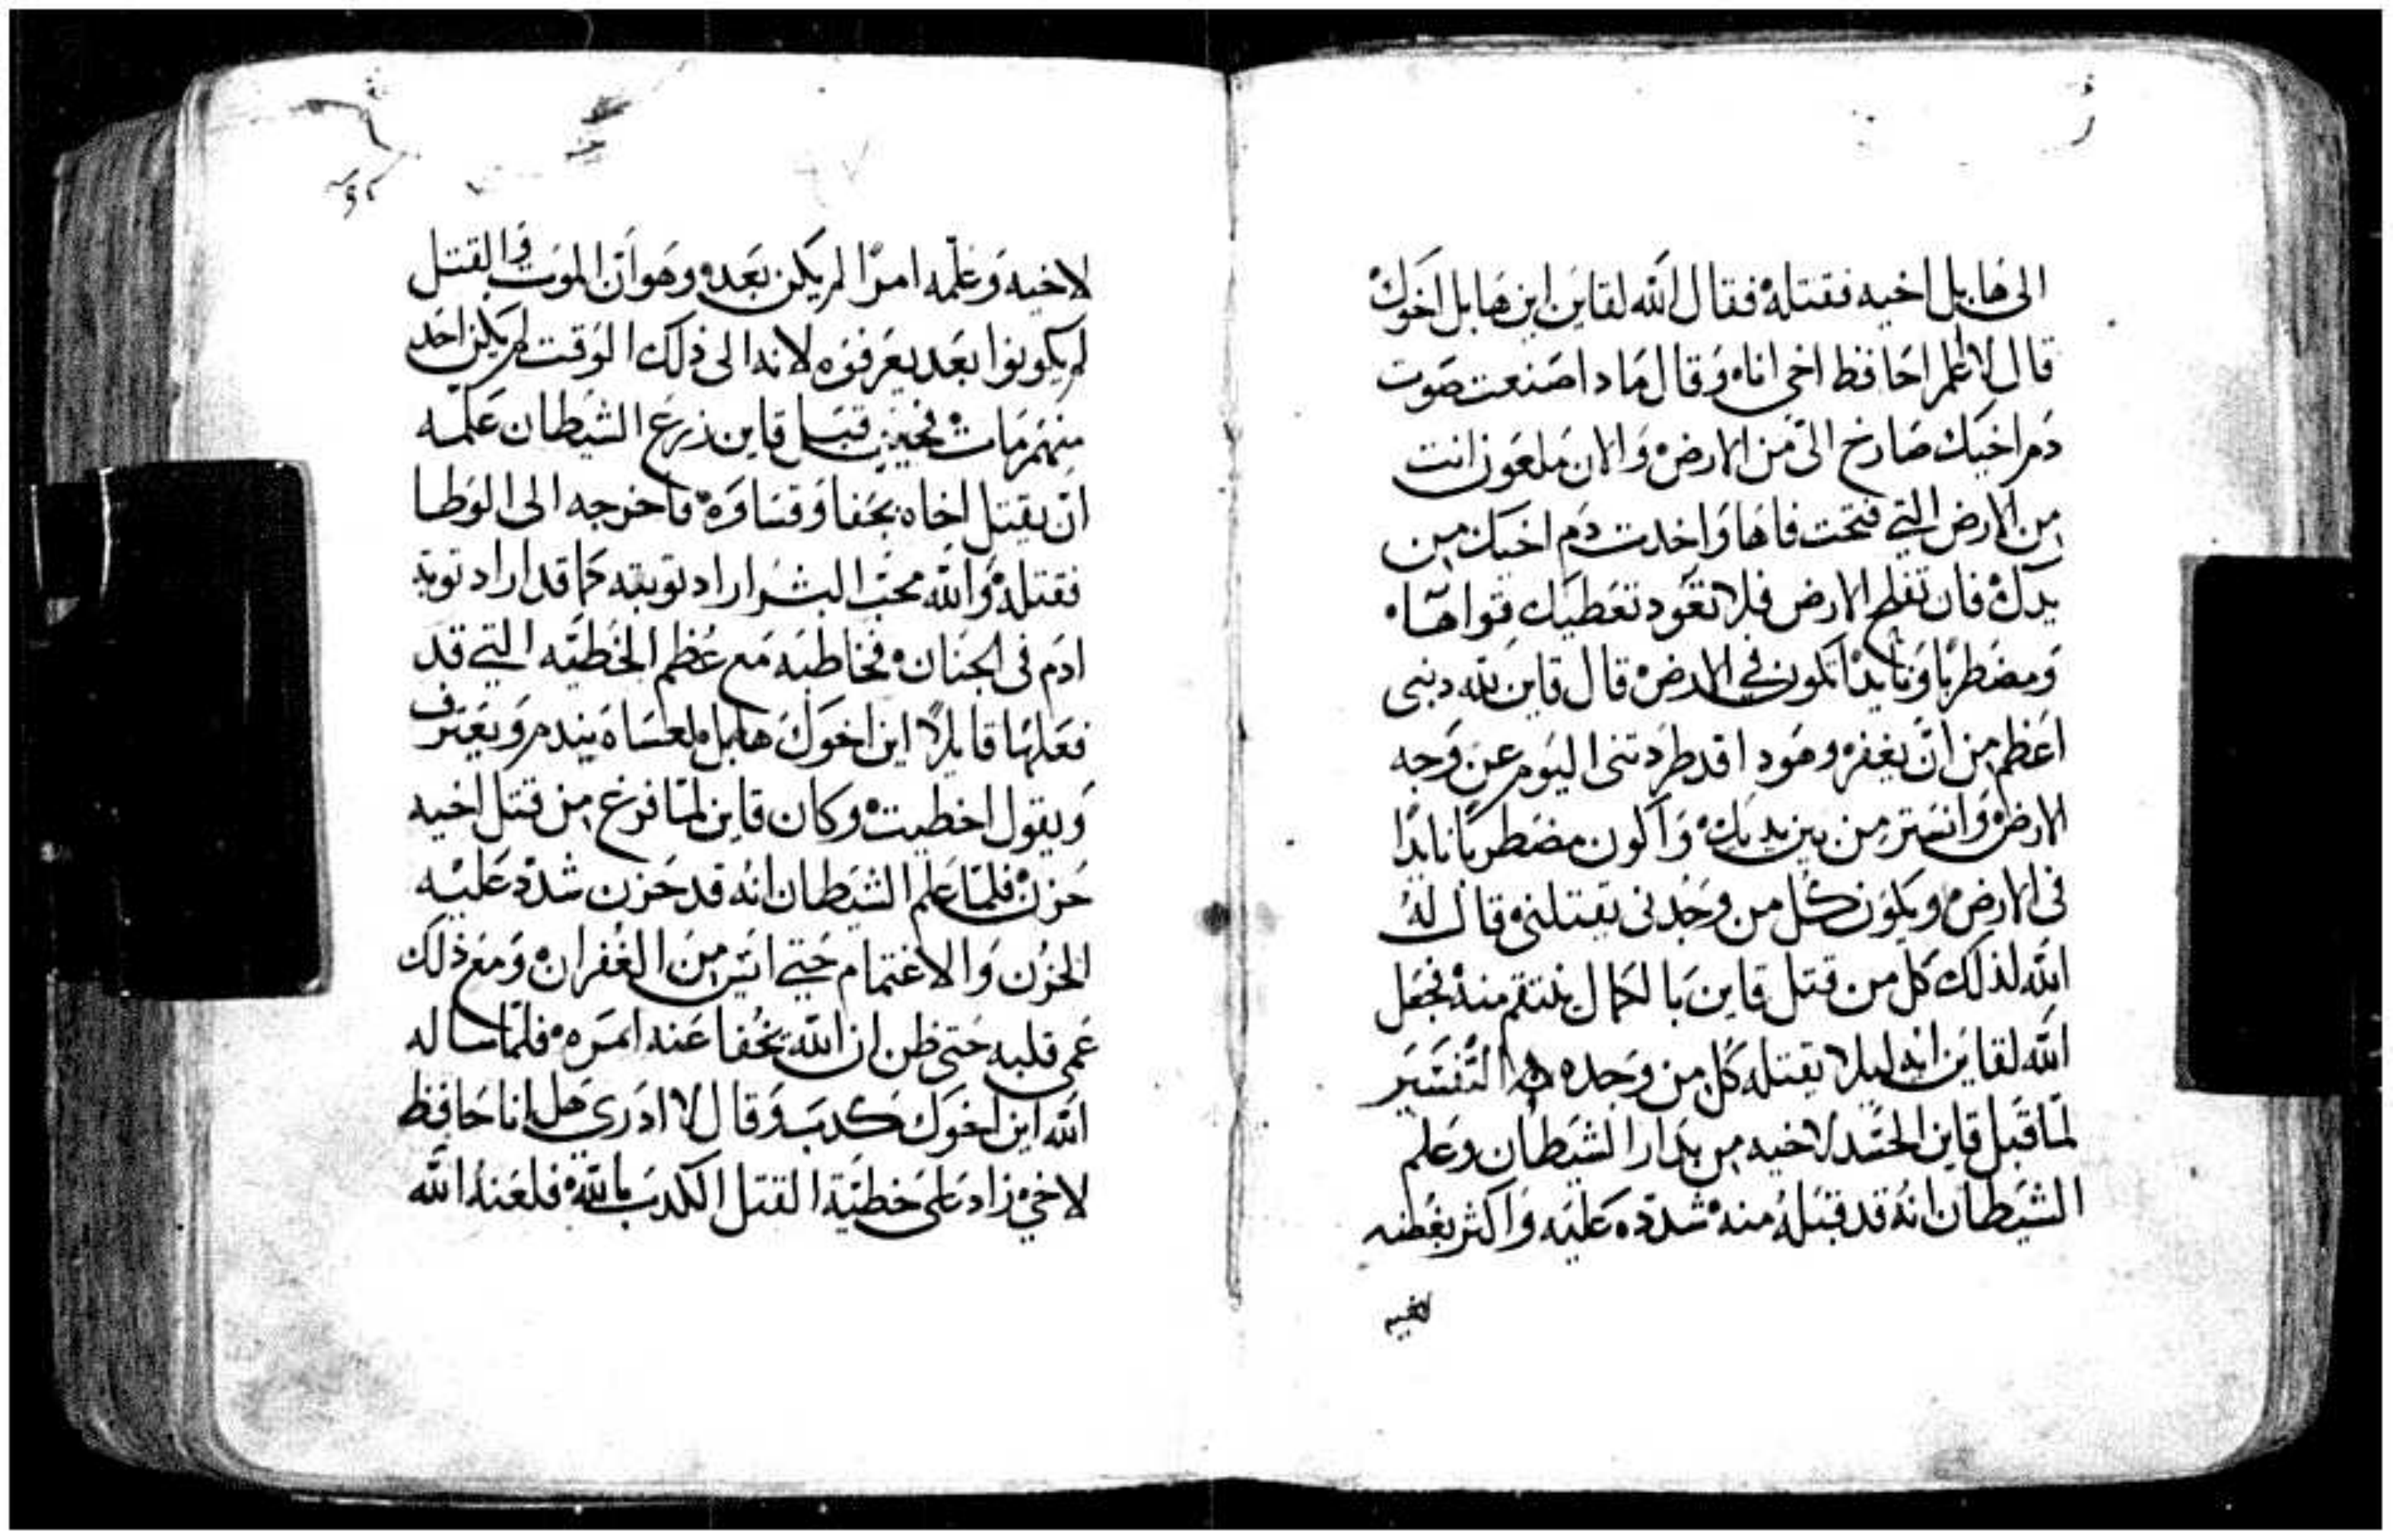 الى هابيل اخيه فقتله فقال الله لقاين اين هابل اخوك
قال لا اعلم احافظ اخي اناه وقال مادا صنعت صوت
دم اخيك صارخ الىّ من الارض والان ملعون انت
من الارض التي فتحت فاها واخدت دم اخيك من
يدك فان تفلح الارض فلا تعود تعطيك قواها
ومضطربًا ونايدًا تكون في الارض قال قاين لله دنبى
اعظم من ان يغفر وهودا قد طردتنى اليوم عن وجه
الارض وانستر من بين يديك واكون مضطربًا نايدًا
فى الارض ويكون كل من وجدنى يقتلنى قال له
الله لذلك كل من قتل قاين بالحمال ينتقم منه فجعل
الله لقاين ايه ليلا يقتله كل من وجده التفسير
لما قبل قاين الحسد لاخيه من بدار الشيطان وعلم
الشيطان انه قد قبله منه شدده عليه واكثر بغضه
لاخيه
لاخيه وعلمه امرًا لم يكن بعده وهو ان الموت والقتل
لم يكونوا بعد يعرفوه لانه الى ذلك الوقت لم يكن احد
منهم مات فحين قبل قاين زرع الشيطان علمه
ان يقتل اخاه بحفا وقساوه فاخرجه الى الوطا
فقتله والله محب البشر اراد توبته كما قد اراد توبة
ادم فى الجنان فخاطبه مع عظم الخطيه التي قد
فعلها قايلًا اين اخوك هابل لعساه يندم ويعترف
ويقول اخطيت وكان قاين لما فرغ من قتل اخيه
حزن فلما علم الشيطان انه قد حزن شدد عليه
الحزن والاغتمام حتي اتيس من الغفران ومع ذلك
عمى قلبه حتى ظن ان الله يخفا عنه امره فلما ساله
الله اين اخوك كدب وقال لا ادري هل انا حافظ
لاخي زاد على خطية القتل الكدب بالله فلعنه الله